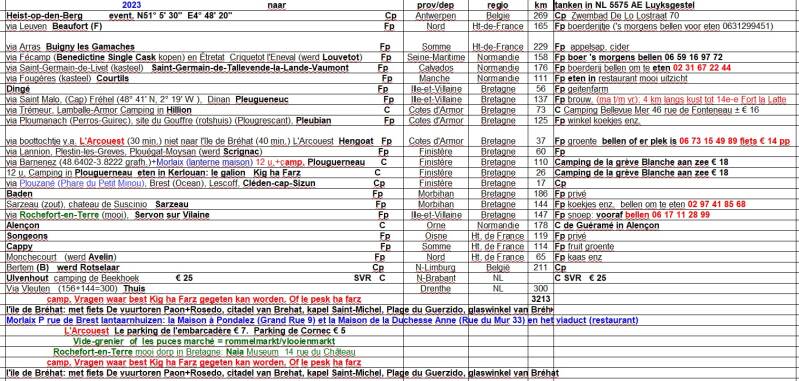 2023 naar prov/dep regio km tanken in NL 5575 AE Luyksgestel
Heist-op-den-Berg event. N51° 5' 30" E4° 48' 20" Cp Antwerpen België 269 Cp Zwembad De Lo Lostraat 70
via Leuven Beaufort (F) Fp Nord Ht-de-France 165 Fp boerderijtje ('s morgens bellen voor eten 0631299451)
via Arras Buigny les Gamaches Fp Somme Ht-de-France 229 Fp appelsap, cider
via Fécamp (Benedictine Single Cask kopen) en Étretat Criquetot l'Eneval (werd Louvetot) Fp Seine-Maritime Normandie 158 Fp boer 's morgens bellen 06 59 16 97 72
via Saint-Germain-de-Livet (kasteel) Saint-Germain-de-Tallevende-la-Lande-Vaumont Fp Calvados Normandie 176 Fp boerderij bellen om te eten 02 31 67 22 44
via Fougères (kasteel) Courtils Fp Manche Normandie 111 Fp eten in restaurant mooi uitzicht
Dingé Fp Ille-et-Vilaine Bretagne 56 Fp geitenfarm
via Saint Malo, (Cap) Fréhel (48° 41' N, 2° 19' W ), Dinan Pleugueneuc Fp Ille-et-Vilaine Bretagne 137 Fp brouw. (ma t/m vr); 4 km langs kust tot 14e-e Fort la Latte
via Trémeur, Lamballe-Armor Camping in Hillion C Cotes d'Armor Bretagne 73 C Camping Bellevue Mer 46 rue de Fonteneau ± € 16
via Ploumanach (Perros-Guirec), site du Gouffre (rotshuis) (Plougrescant), Pleubian Fp Cotes d'Armor Bretagne 125 Fp winkel koekjes enz.
via boottochtje v.a. L'Arcouest (30 min.) niet naar Île de Bréhat (40 min.) L'Arcouest Hengoat Fp Cotes d'Armor Bretagne 37 Fp groente bellen of er plek is 06 73 15 49 89 fiets € 14 pp
via Lannion, Plestin-les-Greves, Plouégat-Moysan (werd Scrignac) Fp Finistère Bretagne 60 Fp
via Barnenez (48.6402-3.8222 graft.)+Morlaix (lanterne maison) 12 u,+camp, Plouguerneau C Finistère Bretagne 110 Camping de la grève Blanche aan zee € 18
12 u, Camping in Plouguerneau eten in Kerlouan: le galion Kig ha Farz C Finistère Bretagne 26 Camping de la grève Blanche aan zee € 18
via Plouzané (Phare du Petit Minou), Brest (Ocean), Lescoff, Cléden-cap-Sizun Cp Finistère Bretagne 17 Cp
Baden Fp Morbihan Bretagne 186 Fp privé
Sarzeau (zout), chateau de Suscinio Sarzeau Fp Morbihan Bretagne 144 Fp koekjes enz, bellen om te eten 02 97 41 85 68
via Rochefort-en-Terre (mooi), Servon sur Vilaine Fp Ille-et-Vilaine Bretagne 147 Fp snoep: vooraf bellen 06 17 11 28 99
Alençon C Orne Normandie 178 C de Guéramé in Alençon
Songeons Fp Oisne Ht. de France 119 Fp privé
Cappy Fp Somme Ht. de France 114 Fp fruit groente
Monchecourt (werd Avelin) Fp Nord Ht. de France 65 Fp kaas enz
Bertem (B) werd Rotselaar Cp N-Limburg België 211 Cp
Ulvenhout camping de Beekhoek € 25 SVR C N-Brabant NL C SVR € 25
Via Vleuten (156+144=300) Thuis Drenthe NL 300
camp, Vragen waar best Kig ha Farz gegeten kan worden. Of le pesk ha farz 3213
l'ile de Bréhat: met fiets De vuurtoren Paon+Rosedo, citadel van Brehat, kapel Saint-Michel, Plage du Guerzido, glaswinkel van Bréhat
Morlaix P rue de Brest lantaarnhuizen: la Maison à Pondalez (Grand Rue 9) et la Maison de la Duchesse Anne (Rue du Mur 33) en het viaduct (restaurant)
L'Arcouest Le parking de l'embarcadère € 7. Parking de Cornec € 5
Vide-grenier of les puces marché = rommelmarkt/vlooienmarkt
Rochefort-en-Terre mooi dorp in Bretagne: Naia Museum 14 rue du Château
camp, Vragen waar best Kig ha Farz gegeten kan worden. Of le pesk ha farz
l'ile de Bréhat: met fiets De vuurtoren Paon+Rosedo, citadel van Brehat, kapel Saint-Michel, Plage du Guerzido, glaswinkel van Bréhat